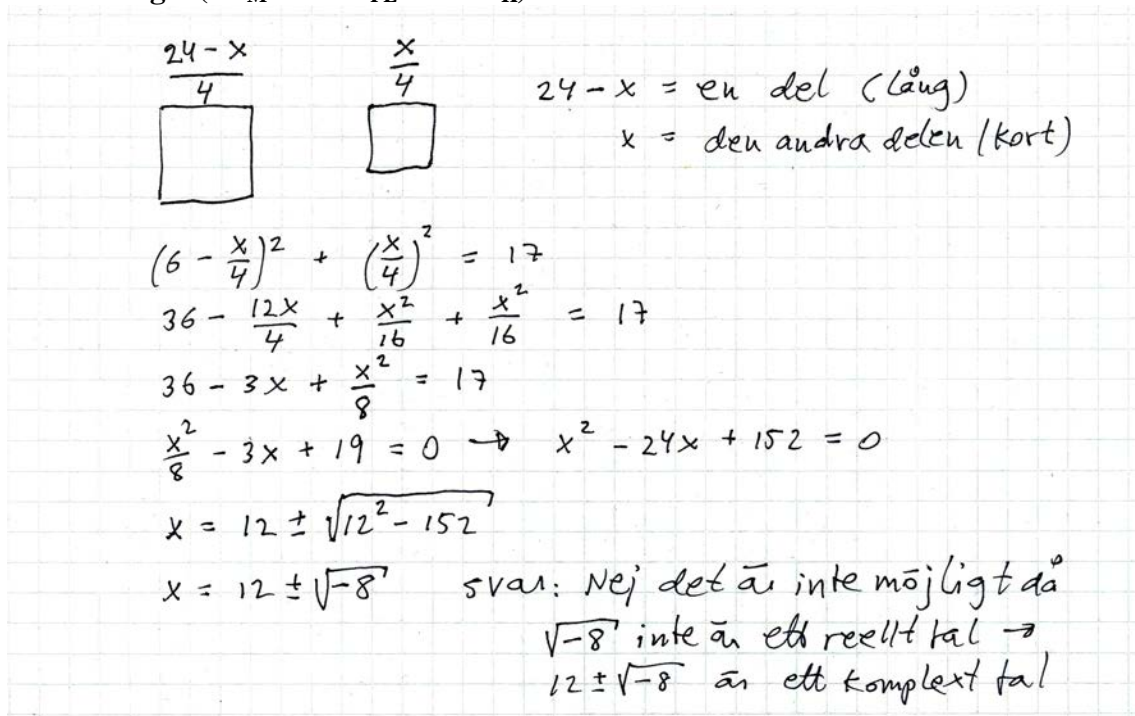 (24 - x)/4    x/4    24 - x = en del (lång)
x = den andra delen (kort)
(6 - x/4)² + (x/4)² = 17
36 - 12x/4 + x²/16 + x²/16 = 17
36 - 3x + x²/8 = 17
x²/8 - 3x + 19 = 0 → x² - 24x + 152 = 0
x = 12 ± √(12² - 152)
x = 12 ± √(-8)    svar: Nej det är inte möjligt då
√(-8) inte är ett reellt tal →
12 ± √(-8) är ett komplext tal